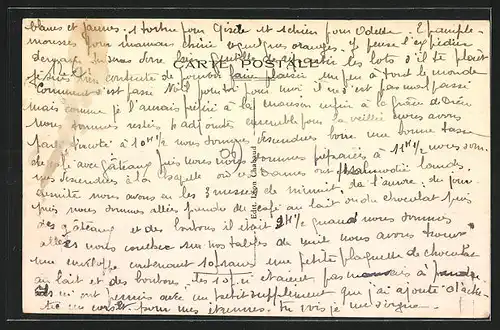 blanes et jaunes. 1 tortue pour Gisèle et 1 chien pour Odette. 2 pample-
mousses pour maman chérie et quelques oranges. Je pense l'expédier
CARTE POSTALE
les lots s'il te plaît
je suis bien contente de pouvoir faire plaisir un peu à tout le monde
Comment s'est passé Noël pour toi pour moi il ne s'est pas mal passé
mais comme je l'aurais préféré à la maison enfin à la grâce de Dieu
nous sommes restés, ensemble pour la veillée nous avons
à 10H1/2 nous sommes descendues boire une bonne tasse
de avec gâteaux puis nous nous sommes préparées à 11H1/2 nous som-
mes descendues à la chapelle où les bannes ont psalmodié
ensuite nous avons eu les 3 messes de minuit, de l'aurore, du jour
puis nous sommes allées prendre du café au lait ou du chocolat puis
des gâteaux et des bonbons il était 2H1/2 quand nous sommes
allées nous coucher sur nos tables de nuit nous avons trouvé
une enveloppe contenant 10 francs une petite plaquette de chocolat
au lait et des bonbons. Les 10f étaient pas mauvais à prendre
avec un petit supplément que j'ai ajouté d'ache-
ter un corset pour mes étrennes. Tu vois je
Edit. Léon Chabaud